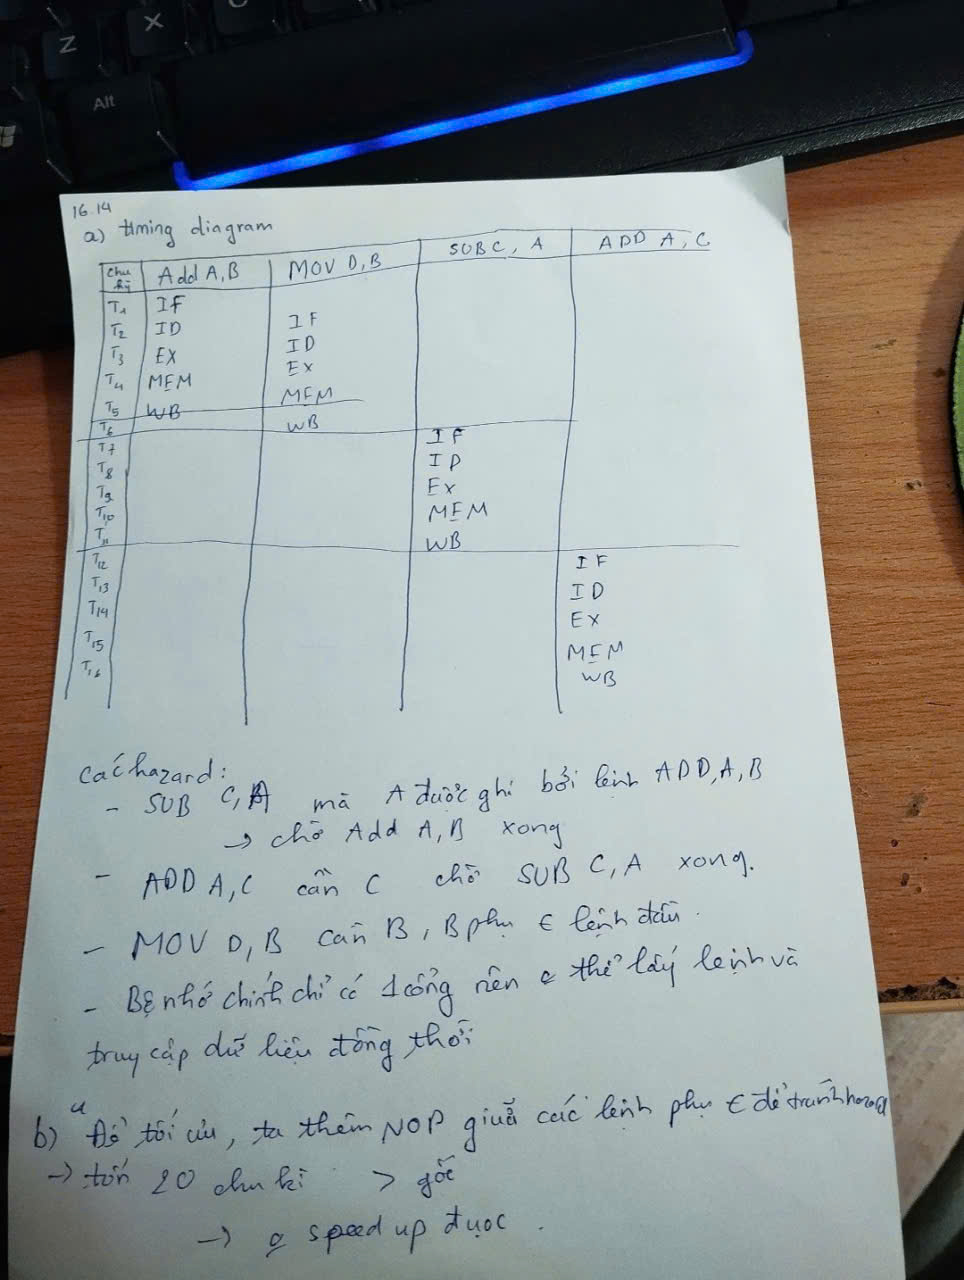 Z
X
Alt
16.14
a) timing diagram
Chu kỳ | Add A,B | MOV D,B | SUB C, A | ADD A, C
T1 IF
T2 ID IF
T3 EX ID
T4 MEM EX
T5 WB MEM
T6 WB
T7 IF
T8 ID
T9 EX
T10 MEM
T11 WB
T12 IF
T13 ID
T14 EX
T15 MEM
T16 WB
Các hazard:
- SUB C, A mà A được ghi bởi lệnh ADD, A, B
→ chờ Add A, B xong
- ADD A, C cần C chờ SUB C, A xong.
- MOV D, B cần B, B phụ ∈ lệnh đầu.
- Bộ nhớ chính chỉ có 1 cổng nên o thể lấy lệnh và
truy cập dữ liệu đồng thời
b) Để tối ưu, ta thêm NOP giữa các lệnh phụ ∈ để tránh hazard
→ tốn 20 chu kì > gốc
→ o speed up được.